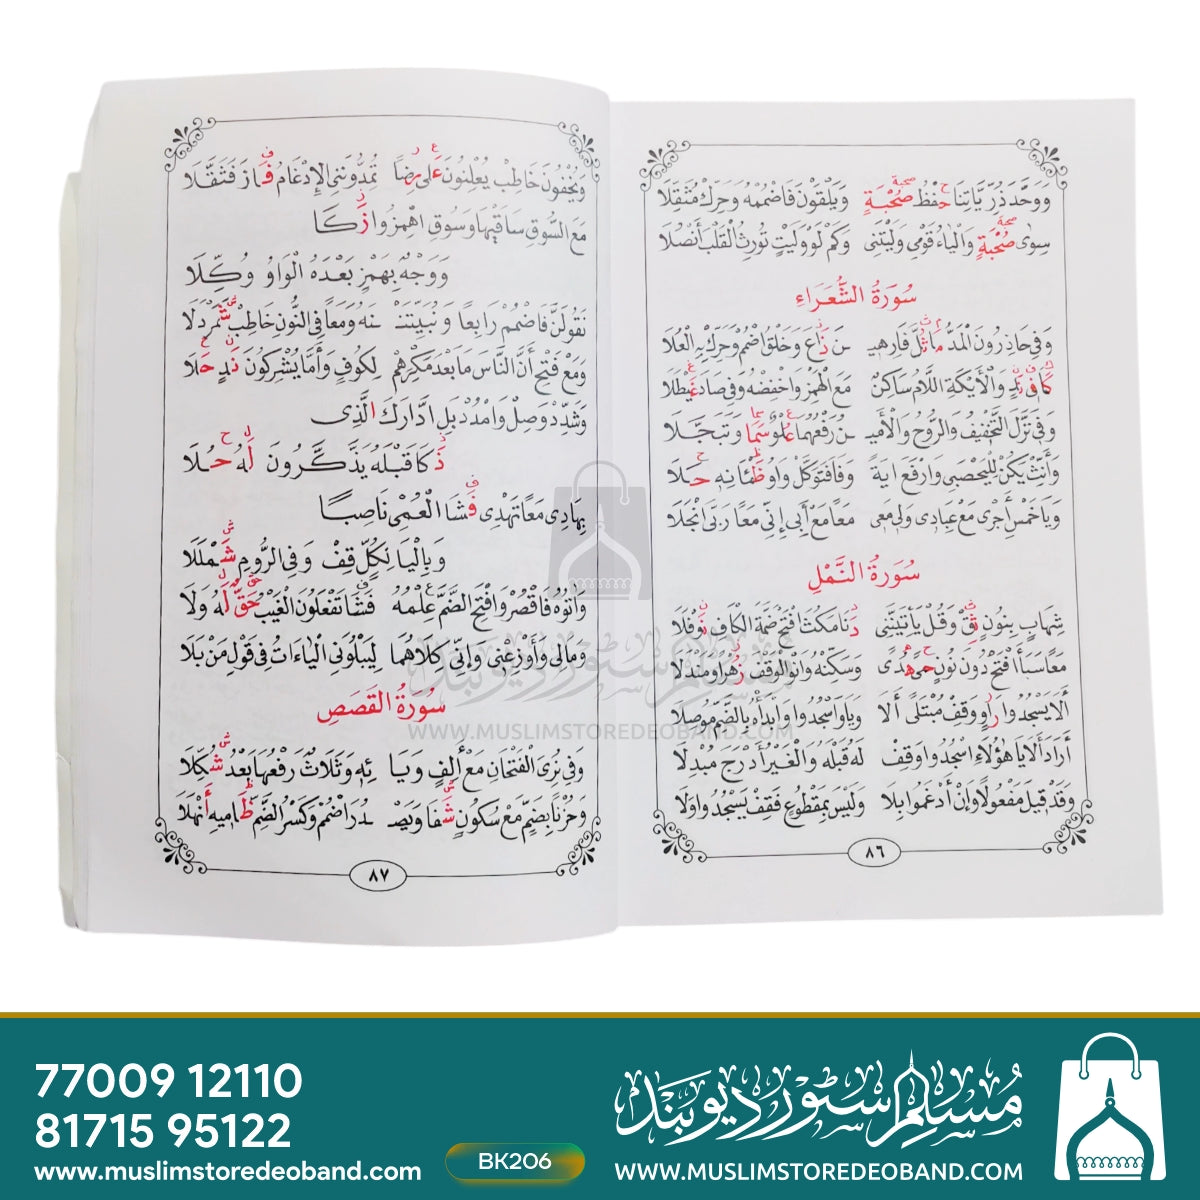 وَوَحَّدَ ذُرِّيَّاتِنَا حِفْظُ صُحْبَةٍ وَيَلْقَوْنَ فَاضْمُمْهُ وَحَرِّكْ مُثَقِّلَا
سِوٰى صُحْبَةٍ وَالْيَاءُ قَوْمِى وَلَيْتَنِى وَكَمْ لَوْ وَلَيْتٍ تُورِثُ الْقَلْبَ أَنْصُلَا
سُورَةُ الشُّعَرَاءِ
وَفِى حَاذِرُونَ الْمَدُّ مَا ثُلَّ فَارِهِيـ ـنَ ذَاعَ وَخَلْقُ اضْمُمْ وَحَرِّكْ بِهِ الْعُلَا
كَمَا فِى نَدٍ وَالْأَيْكَةِ اللَّامُ سَاكِنٌ مَعَ الْهَمْزِ وَاخْفِضْهُ وَفِى صَادَ غَيْطَلَا
وَفِى نَزَّلَ التَّخْفِيفُ وَالرُّوحُ وَالْأَمِيـ ـنُ رَفْعُهُمَا عُلْوٌ سَمَا وَتَبَجَّلَا
وَأَنِّثْ يَكُنْ لِلْيَحْصَبِى وَارْفَعْ اٰيَةً وَفَا فَتَوَكَّلْ وَاوُ ظَمْاٰنِهِ حَلَا
وَيَا خَمْسِ أَجْرِى مَعْ عِبَادِى وَلِى مَعِى مَعًا مَعْ أَبِى إِنِّى مَعًا رَبِّىَ انْجَلَا
سُورَةُ النَّمْلِ
شِهَابٍ بِنُونٍ ثِقْ وَقُلْ يَأْتِيَنَّنِى دَنَا مَكُثَ افْتَحْ ضَمَّةَ الْكَافِ نَوْفَلَا
مَعًا سَبَأَ افْتَحْ دُونَ نُونٍ حِمًى هُدًى وَسَكِّنْهُ وَانْوِ الْوَقْفَ زُهْرًا وَمَنْدَلَا
أَلَا يَسْجُدُوا رَاوٍ وَقِفْ مُبْتَلًى أَلَا وَيَا وَاسْجُدُوا وَابْدَأْهُ بِالضَّمِّ مُوصِلَا
أَرَادَ أَلَا يَا هٰؤُلَاءِ اسْجُدُوا وَقِفْ لَهُ قَبْلَهُ وَالْغَيْرُ أَدْرَجَ مُبْدِلَا
وَقَدْ قِيلَ مَفْعُولًا وَإِنْ أَدْغَمُوا بِلَا وَلَيْسَ بِمَقْطُوعٍ فَقِفْ يَسْجُدُوا وَلَا
٨٦
وَيُخْفُونَ خَاطِبْ يُعْلِنُونَ عَلٰى رِضًا تُمِدُّونَنِى الْإِدْغَامُ فَازَ فَثَقَّلَا
مَعَ السُّوقِ سَاقَيْهَا وَسُوقِ اهْمِزُوا زَكَا
وَوَجْهٌ بِهَمْزٍ بَعْدَهُ الْوَاوُ وُكِّلَا
نَقُولَنَّ فَاضْمُمْ رَابِعًا وَنُبَيِّتَنْـ ـنَهُ وَمَعًا فِى النُّونِ خَاطِبْ شَمَرْدَلَا
وَمَعْ فَتْحِ أَنَّ النَّاسَ مَا بَعْدَ مَكْرِهِمْ لِكُوفٍ وَأَمَّا يُشْرِكُونَ نَدٍ حَلَا
وَشَدِّدْ وَصِلْ وَامْدُدْ بَلِ ادَّارَكَ الَّذِى
ذَكَا قَبْلَهُ يَذَّكَّرُونَ لَهُ حُلَا
بِهَادِى مَعًا تَهْدِى فَشَا الْعُمْىَ نَاصِبًا
وَبِالْيَا لِكُلٍّ قِفْ وَفِى الرُّومِ شَمْلَلَا
وَاٰتُوهُ فَاقْصُرْ وَافْتَحِ الضَّمَّ عِلْمُهُ فَشَا تَفْعَلُونَ الْغَيْبُ حَقٌّ لَهُ وَلَا
وَمَالِى وَأَوْزِعْنِى وَإِنِّى كِلَاهُمَا لِيَبْلُوَنِى الْيَاءَاتُ فِى قَوْلِ مَنْ بَلَا
سُورَةُ الْقَصَصِ
وَفِى نُرِىَ الْفَتْحَانِ مَعْ أَلِفٍ وَيَا ئِهِ وَثَلَاثٌ رَفْعُهَا بَعْدُ شُكِّلَا
وَحُزْنًا بِضَمٍّ مَعْ سُكُونٍ شَفَا وَيَصْـ ـدُرَ اضْمُمْ وَكَسْرُ الضَّمِّ ظَامِيهِ أَنْهَلَا
٨٧
مسلم سٹور دیوبند
WWW.MUSLIMSTOREDEOBAND.COM
77009 12110
81715 95122
www.muslimstoredeoband.com
BK206
مسلم سٹور دیوبند
WWW.MUSLIMSTOREDEOBAND.COM